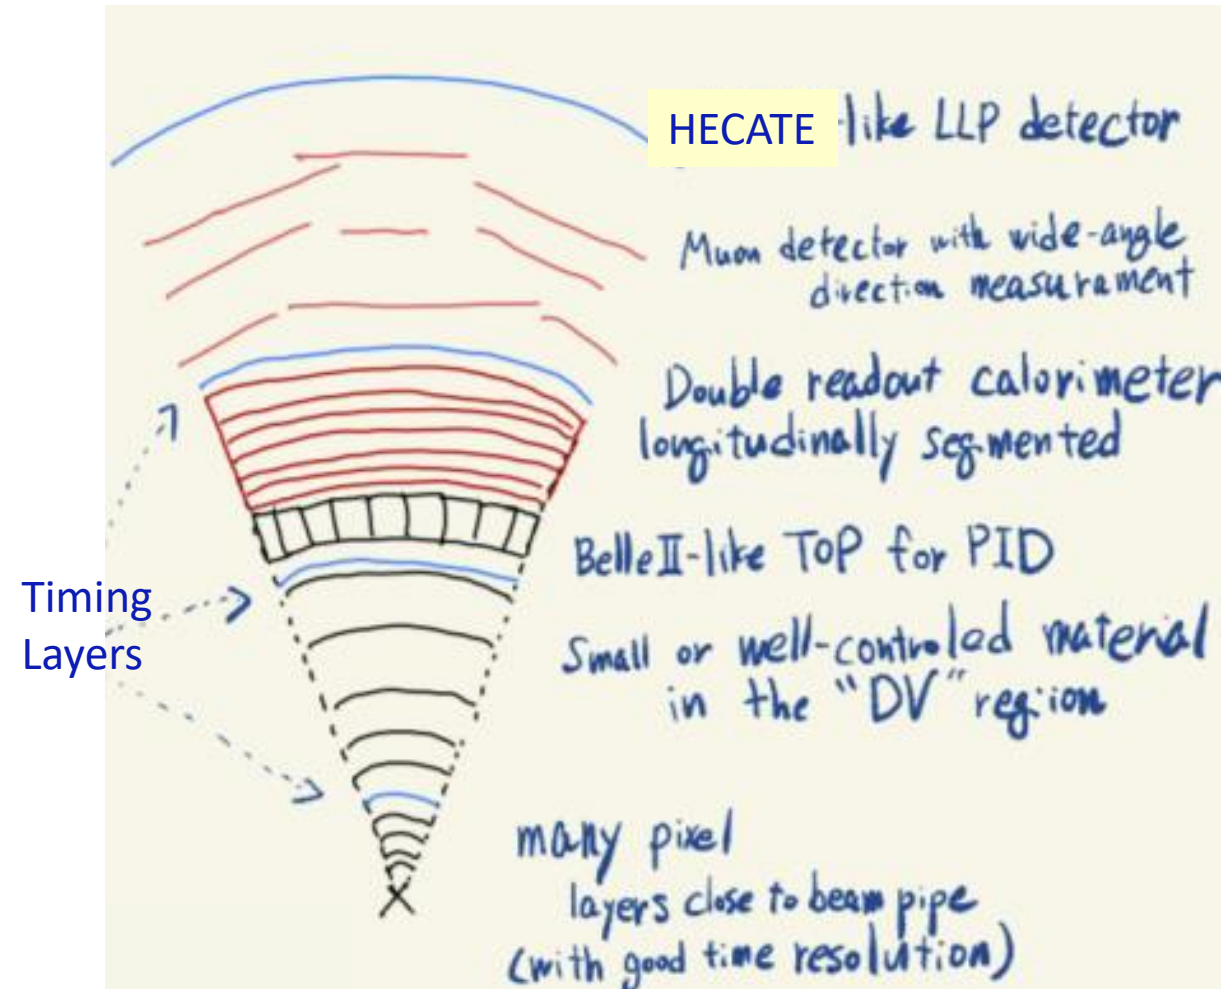 HECATE -like LLP detector
Muon detector with wide-angle
direction measurament
Double readout calorimeter
longitudinally segmented
Belle II-like TOP for PID
Timing
Layers
Small or well-controled material
in the "DV" region
many pixel
layers close to beam pipe
(with good time resolution)